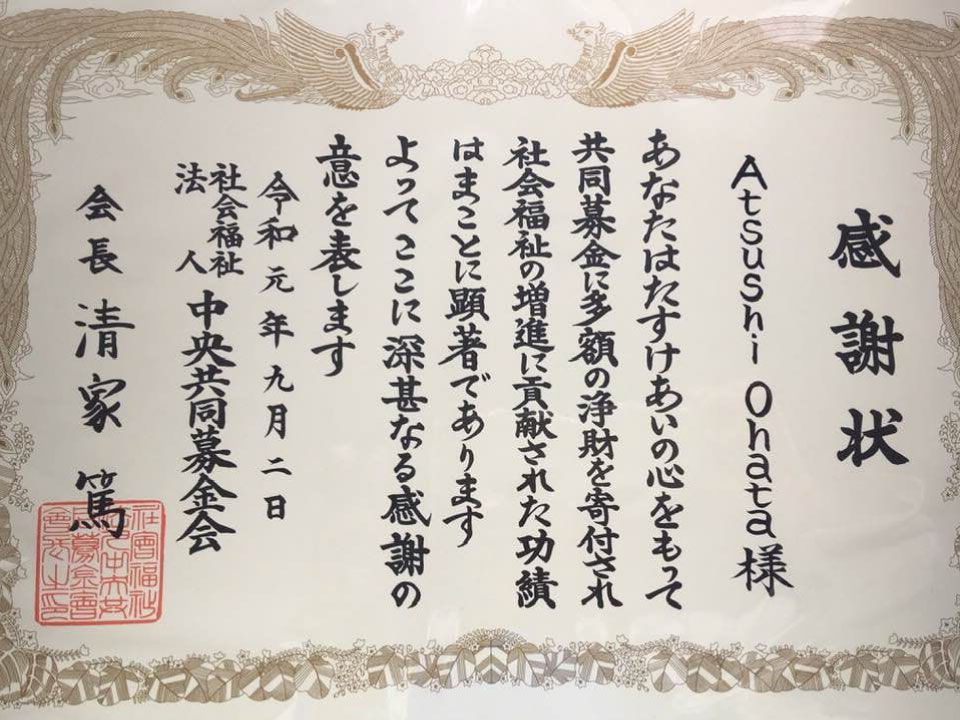 感謝状
Atsushi Ohata様
あなたはたすけあいの心をもって
共同募金に多額の浄財を寄付され
社会福祉の増進に貢献された功績
はまことに顕著であります
よってここに深甚なる感謝の
意を表します
令和元年九月二日
社会福祉
法人
中央共同募金会
会長 清家 篤